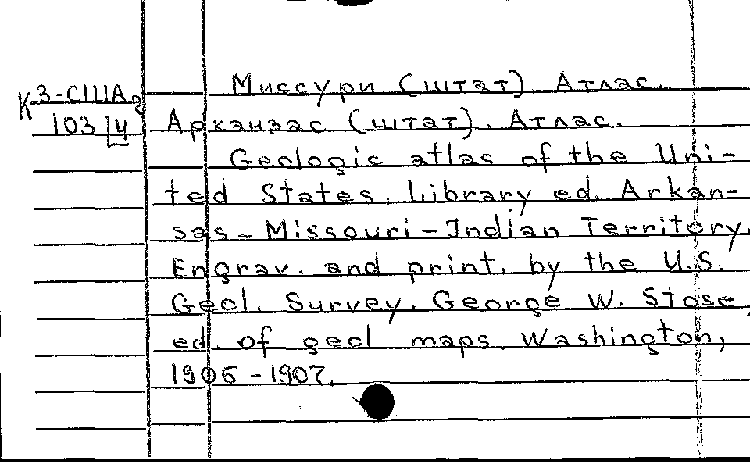 К 3-США
103 | 4
Миссури (штат) Атлас.
Арканзас (штат). Атлас.
Geologic atlas of the Uni-
ted States. Library ed. Arkan-
sas-Missouri-Indian Territory.
Engrav. and print. by the U.S.
Geol. Survey. George W. Stose,
ed. of geol maps. Washington,
1905-1907.